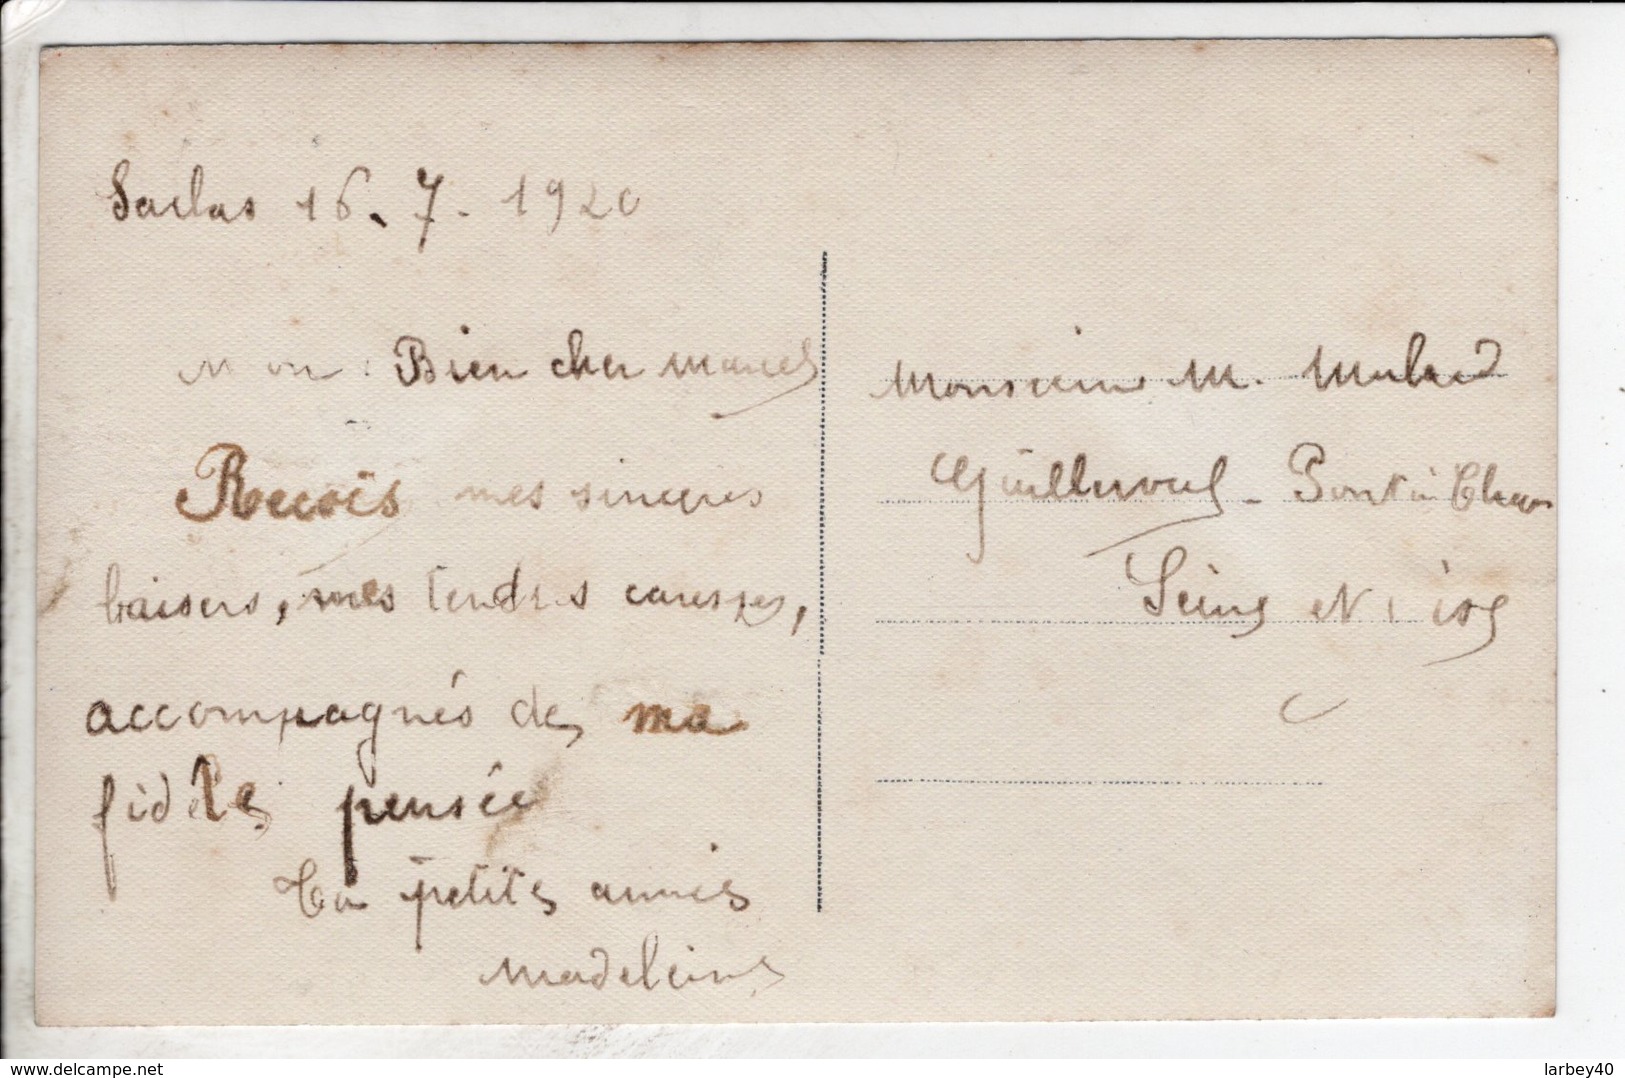 Saclas 16. 7. 1920
Mon Bien cher Marcel
Recois mes sinceres
baisers, mes tendres caresses,
accompagnés de ma
fidèle pensée
Ta petite amie
Madeleine
Monsieur M.
Pont à
Seine et Oise
delcampe.net
larbey40